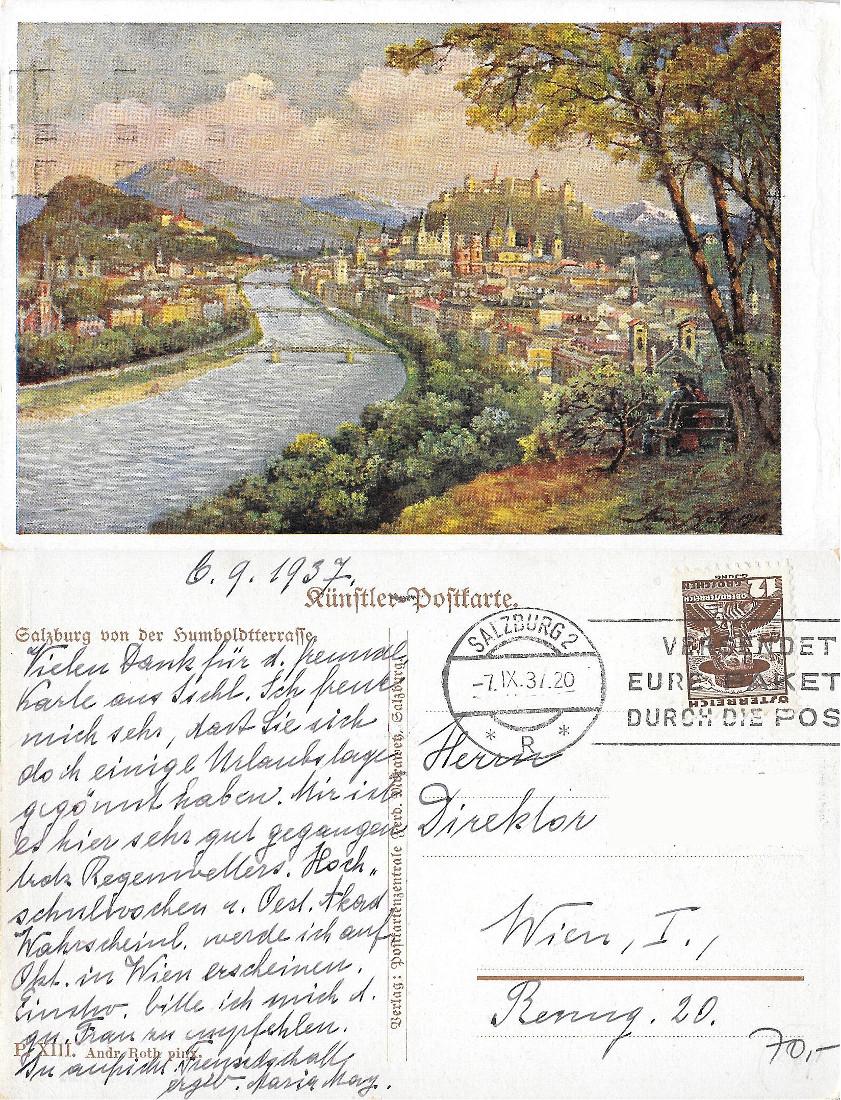 6.9.1937.
Künstler-Postkarte.
Salzburg von der Humboldtterrasse.
Vielen Dank für d. freundl.
Karte aus Ischl. Ich freue
mich sehr, dass Sie sich
doch einige Urlaubstage
gegönnt haben. Mir ist
es hier sehr gut gegangen
trotz Regenwetters. Hoch-
schulwochen u. Oest. Akad.
Wahrscheinl. werde ich auf
Okt. in Wien erscheinen.
Einstw. bitte ich mich d.
gn. Frau zu empfehlen.
In aufricht. Freundschaft
ergeb. Maria May.
P. XIII. Andr. Roth pinx.
Verlag: Postkartenzentrale Ferd. Salzburg.
SALZBURG 2
-7.IX.37.20
* R *
VERSENDET
EURE PAKET
DURCH DIE POS
17
GROSCHEN
OBERÖSTERREICH
ÖSTERREICH
Herrn
Direktor
Wien, I.,
20.
70,-